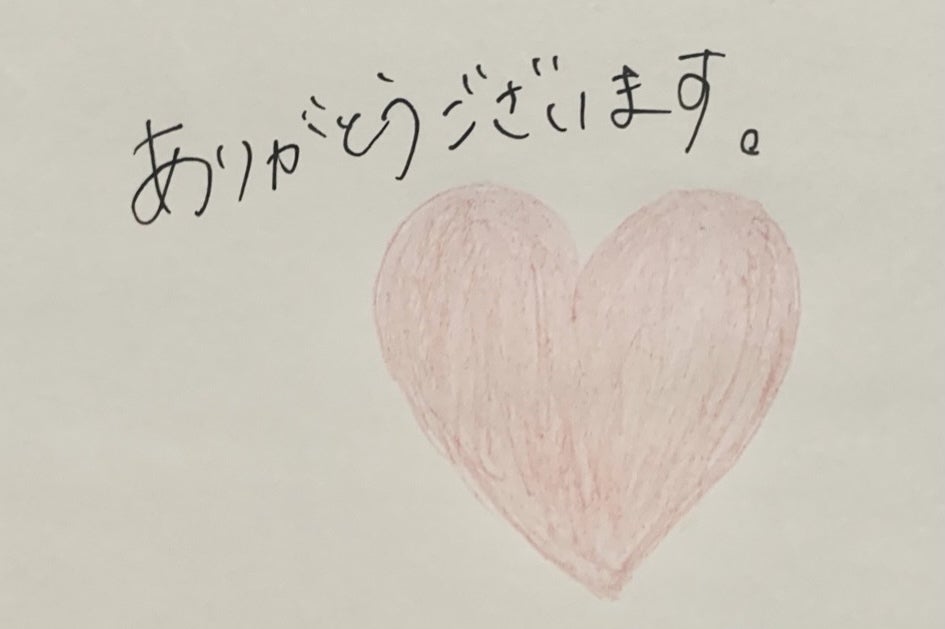 ありがとうございます。